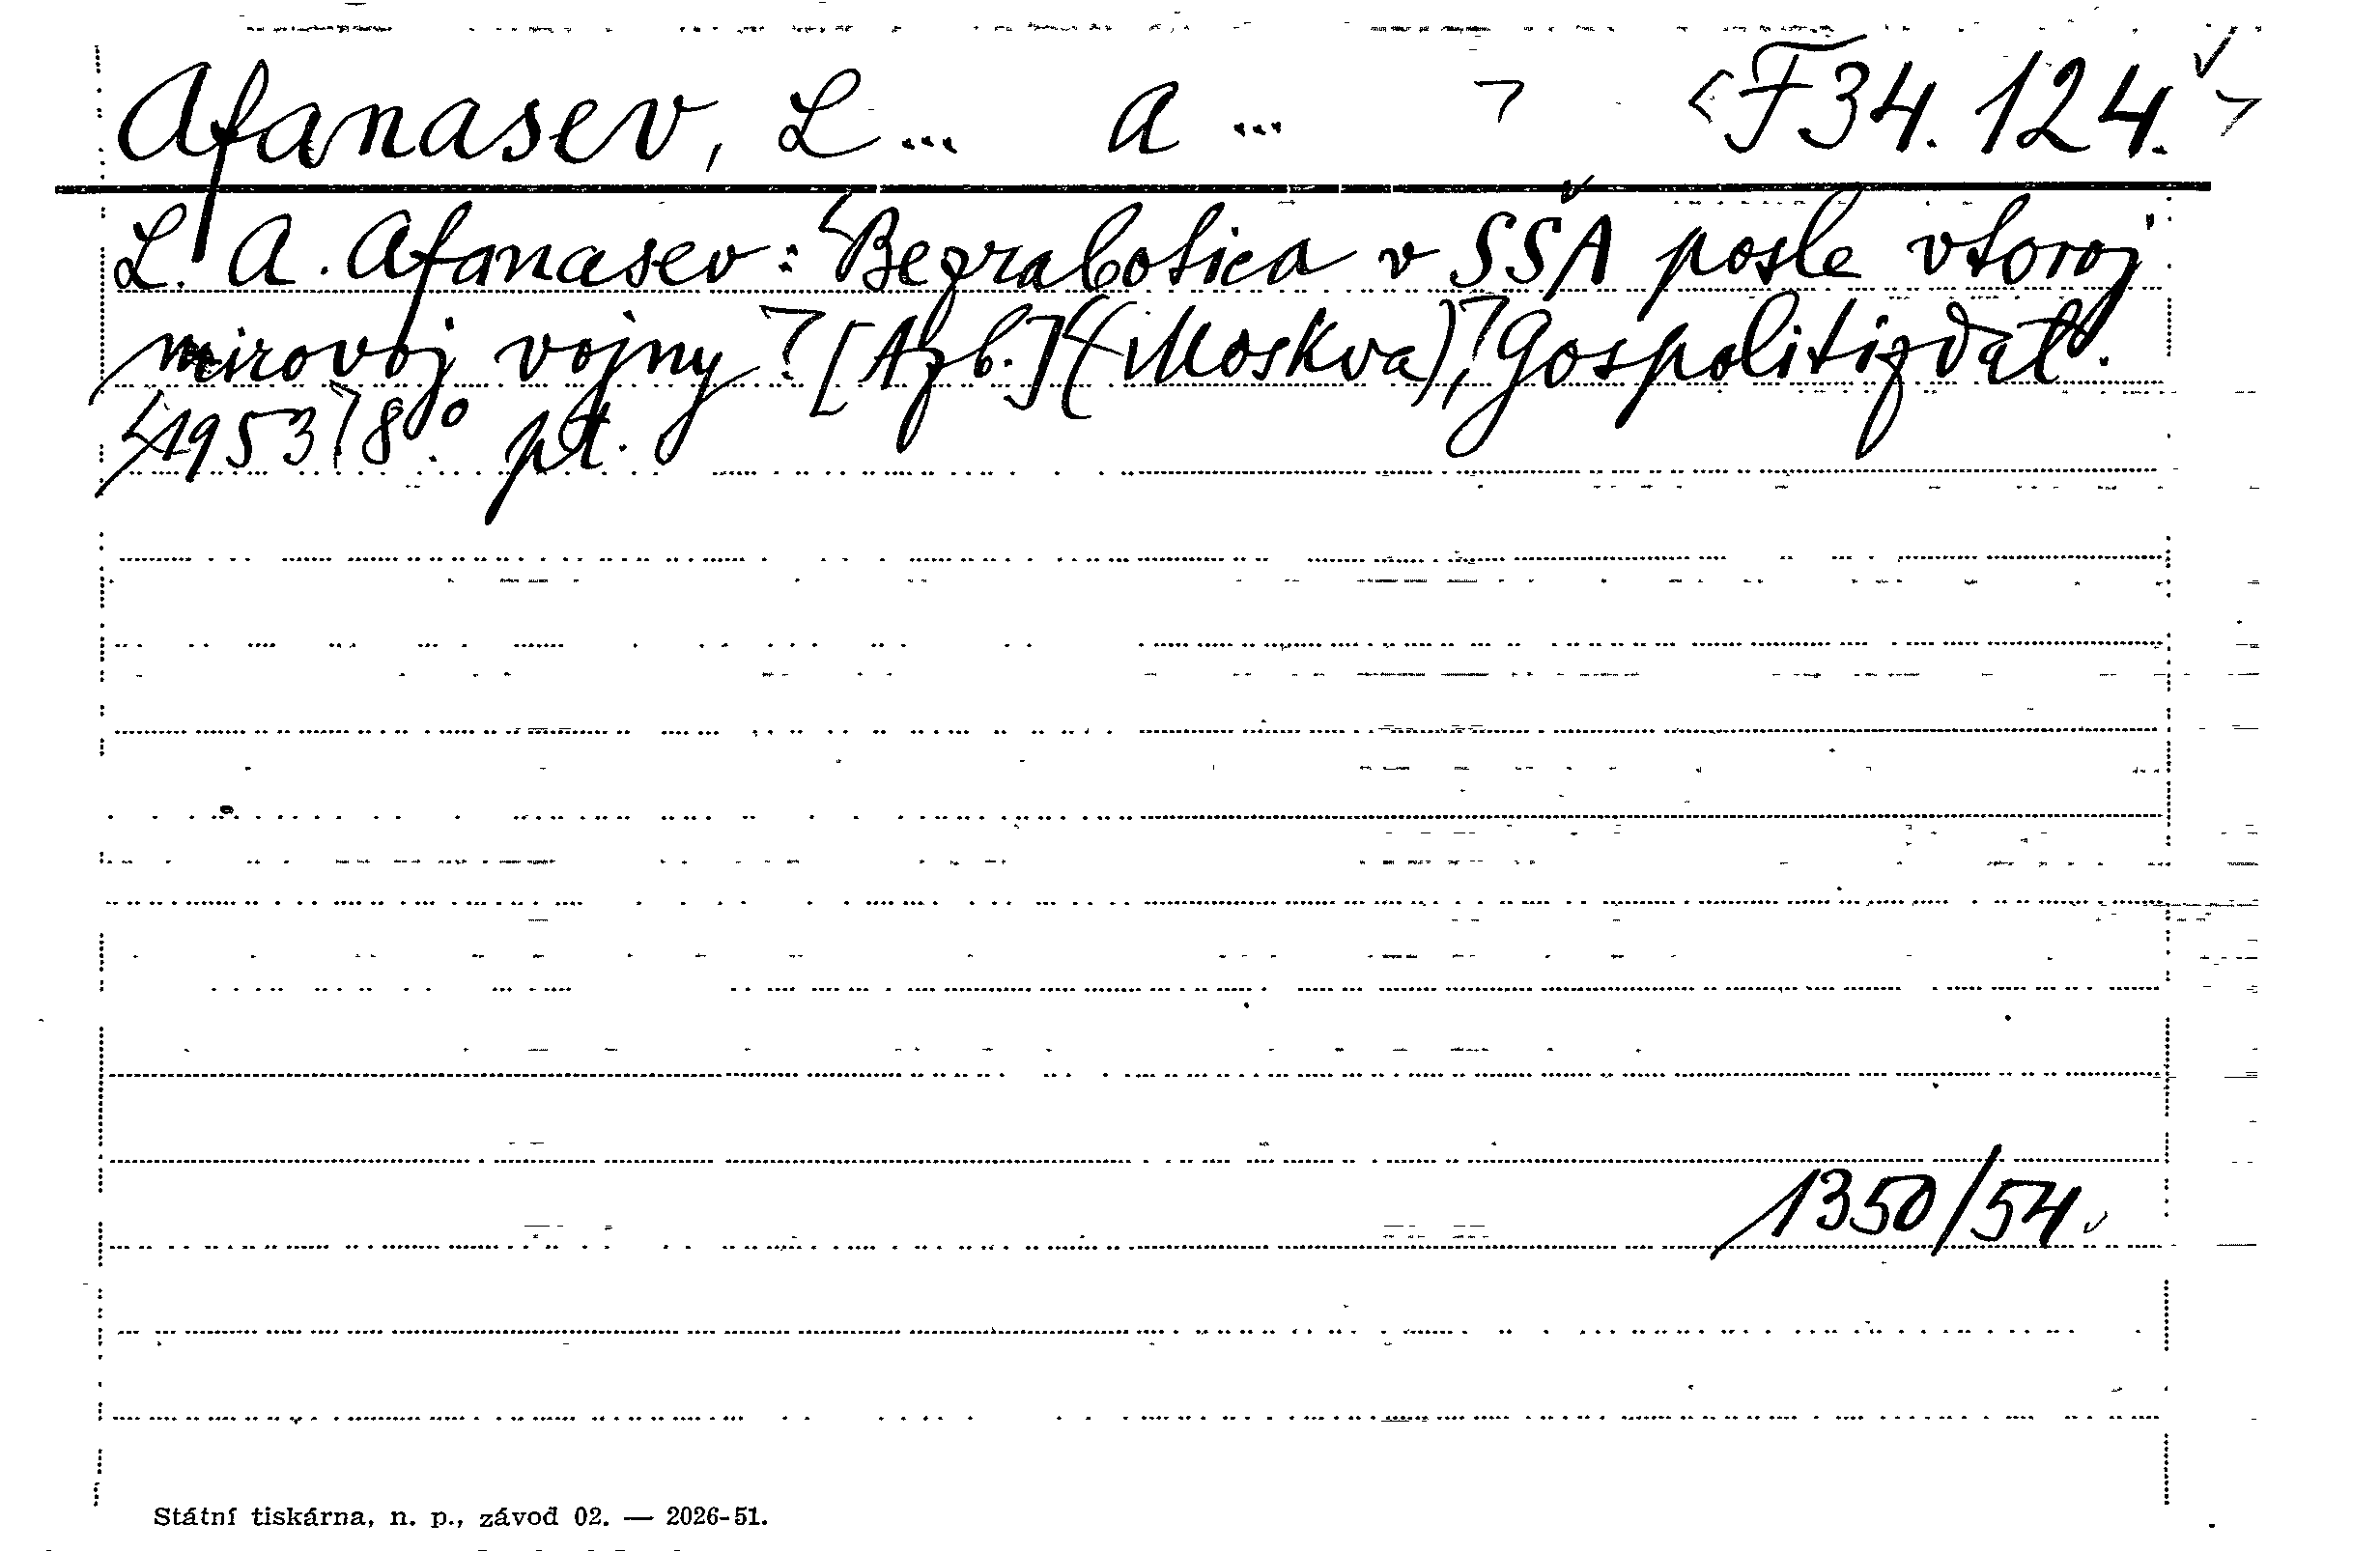 Afanasev, L... A... F34.124.
L. A. Afanasev: Bezrabotica v SŠA posle vtoroj
mirovoj vojny [Azb.] (Moskva), Gospolitizdat.
1953 8.° pt.
1350/54.
Státní tiskárna, n. p., závod 02. — 2026-51.